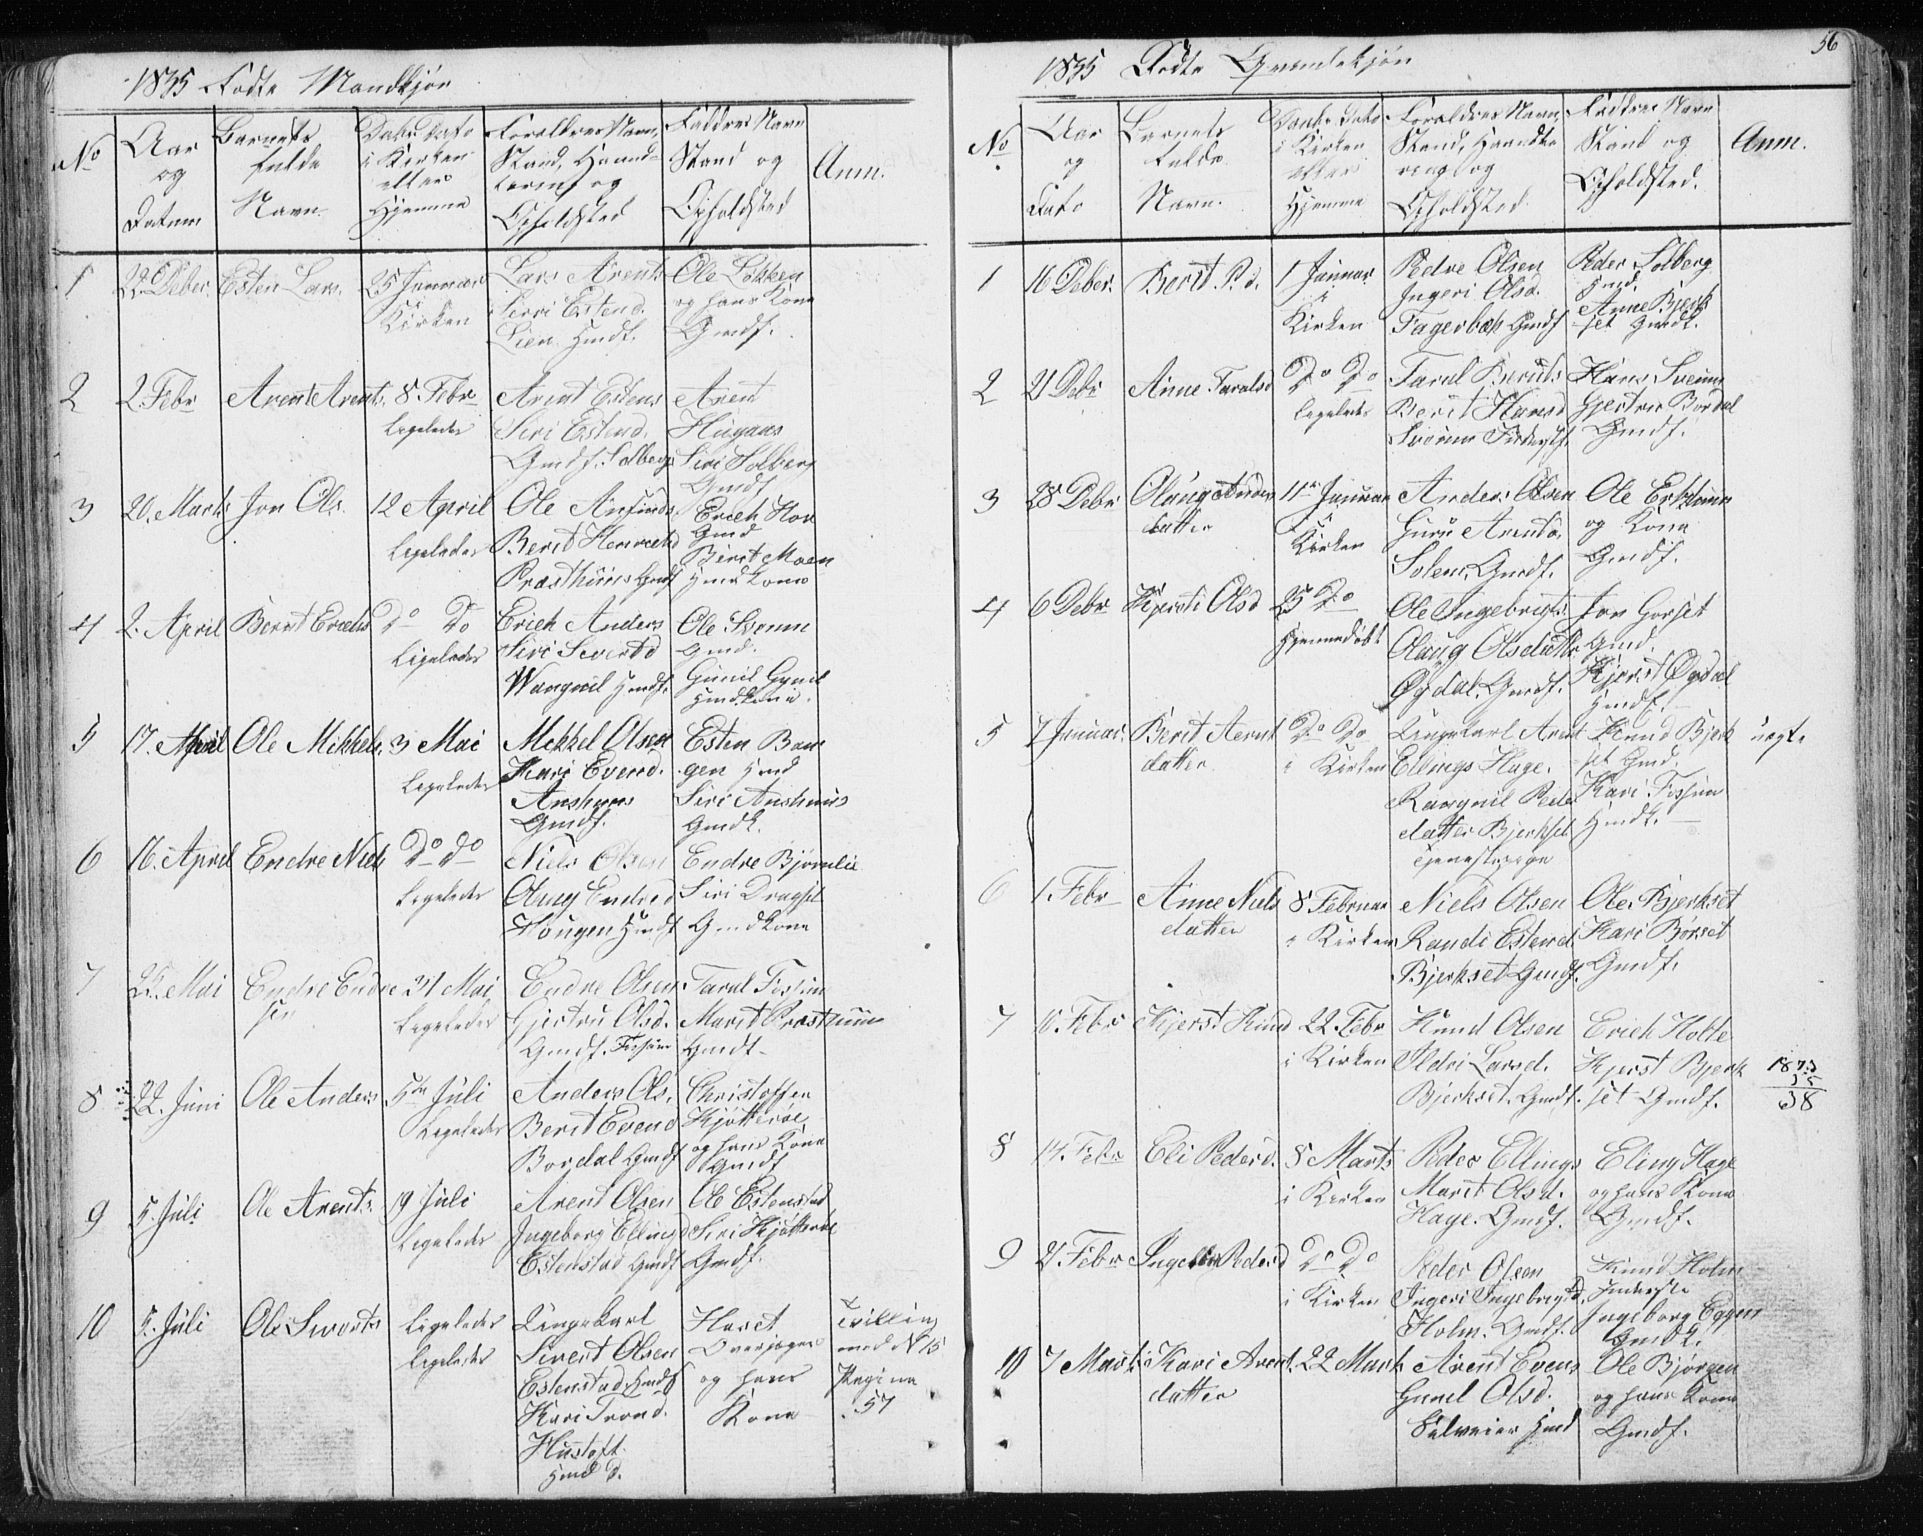 1835 Fødte Mandkjøn
No
Aar
og
Datum
Barnets
fulde
Navn
Daabs Dato
i Kirken
eller
Hjemme
Forældres Navn,
Stand, Haand-
tering og
Opholdsted
Faddres Navn
Stand og
Opholdsted
Anm.
1
22 Deber.
Esten Lars.
25 Januar
Kirken
Lars Arents
Siri Estend.
Lien Gmdf.
Ole Løkken
og hans Kone
Gmdf.
2
2. Febr
Arent Arents.
8. Febr
Ligeledes
Arent Estens
Siri Estend.
Gmdf. Solberg
Arent
Haugaas
Siri Solberg
Gmdf
3
20. Marts
Jon Ols.
12 April
Ligeledes
Ole Anfinds.
Berit Henrictsd
Præsthuus Gmdf
Erich Hov
Gmd
Berit Moen
Gmd Kone
4
2. April
Bernt Erichs
Do Do
Ligeledes
Erich Anders
Siri Sivertsd
Wangvil Hmdf.
Ole Svorun
Gmd.
Gunil Gynil
Hmdkone.
5
17. April
Ole Mikkels.
3 Mai
Ligeledes
Mekkel Olsen
Kari Evend.
Anshuus
Gmdf.
Esten Bau
gen Hmd
Siri Anshuus
Gmdk.
6
16. April
Endre Niels
Do Do
Ligeledes
Niels Olsen
Olaug Endred
Hougen Hmdf
Endre Bjørnlie
Siri Dragset
Gmdkone
7
25. Mai
Endre Endre
sen
31 Mai
Ligeledes
Endre Olsen
Gjertru Olsd.
Gmdf. Fossum
Tarul Fossum
Marit Præsthuus
Gmdf.
8
22. Juni
Ole Anders
5te Juli
Ligeledes
Anders Ols.
Berit Evend
Bordal Gmdf
Christoffer
Kjøtterøe
og hans Kone
Gmdf
9
5. Juli
Ole Arents.
19 Juli
Ligeledes
Arent Olsen
Ingeborg Ellingsd
Estenstad Gmdf
Ole Estenstad
Siri Kjøtterøe
Gmdf.
10
5. Juli
Ole Siverts
Ligeledes
Ligeledes
Ungekarl
Sivert Olsen
Estenstad Gmdf
Kari Trond.
Hustoft
Hmd d.
Floret
Overjæger
og hans
Kone
Tvilling
med N 15
Pagina
57
56
1835 Fødte Qvindekjøn
No
Aar
og
Dato
Barnets
fulde
Navn.
Daabs Dato
i Kirken
eller
Hjemme
Forældres Navn,
Stand, Haandte
ring og
Opholdsted.
Faddres Navn
Stand og
Opholdsted.
Anm.
1
16 Deber.
Berit P. d.
1 Januar
i
Kirken
Pedre Olsen
Ingeri Olsd.
Fagerbæk Gmdf
Peder Solberg
Gmd.
Anne Bjerk
set Gmdk.
2
21 Debr
Anne Taralsd
Do Do
Ligeledes
Tarul Beruls
Berit Hansd
Svorun Inderstf.
Hans Svorun
Gjertru Bordal
Gmdf.
3
28 Debr
Olaug Anders
datter
11te Januar
i
Kirken
Anders Olsen
Guru Arentsd.
Solem, Gmdf.
Ole Erkstrum
og Kone
Gmdf.
4
6 Debr
Kjersti Olsd
25 Do
Hjemmedøbt
Ole Ingebrigts.
Olaug Olsdatter
Øydal. Gmdf.
Jon Gorset
Gmd.
Kjerst Øydal
Hmdf.
5
7 Januar.
Berit Arent
datter
Do Do
i Kirken
Ungekarl Arent
Ellings Hage.
Rangnil Peder
datter Bjerkset
Tjenestepige
Knud Bjerk
set Gmd.
Kari Fossum
Hmdk.
uægte
6
1. Febr
Anne Niels
datter
8 Februar
i Kirken
Niels Olsen
Randi Estend.
Bjerkset Gmdf.
Ole Bjerkset
Kari Børset
Gmdf.
7
10. Febr
Kjerst Knud
22. Febr
i Kirken
Knud Olsen
Ildri Larsd.
Bjerkset. Gmdf.
Erich Holte
Kjerst Bjerk
set Gmdf.
1873
35
38
8
14. Febr
Eli Pederd.
8 Marts
i Kirken
Peder Ellings
Marit Olsd.
Hage. Gmdf.
Eling Hage
og hans Kone
Gmdf.
9
21. Febr
Pedersd
Do Do
i Kirken
Peder Olsen
Ingeri Ingebrigtsd.
Holm. Gmdf.
Knud Holm
Inderste
Ingeborg Eggen
Gmdk.
10
7 Marts
Kari Arent
datter
22 Marts
Arent Evens
Gunel Olsd.
Sulveier Hmd
Ole Bjørgen
og hans Kone
Gmdf.